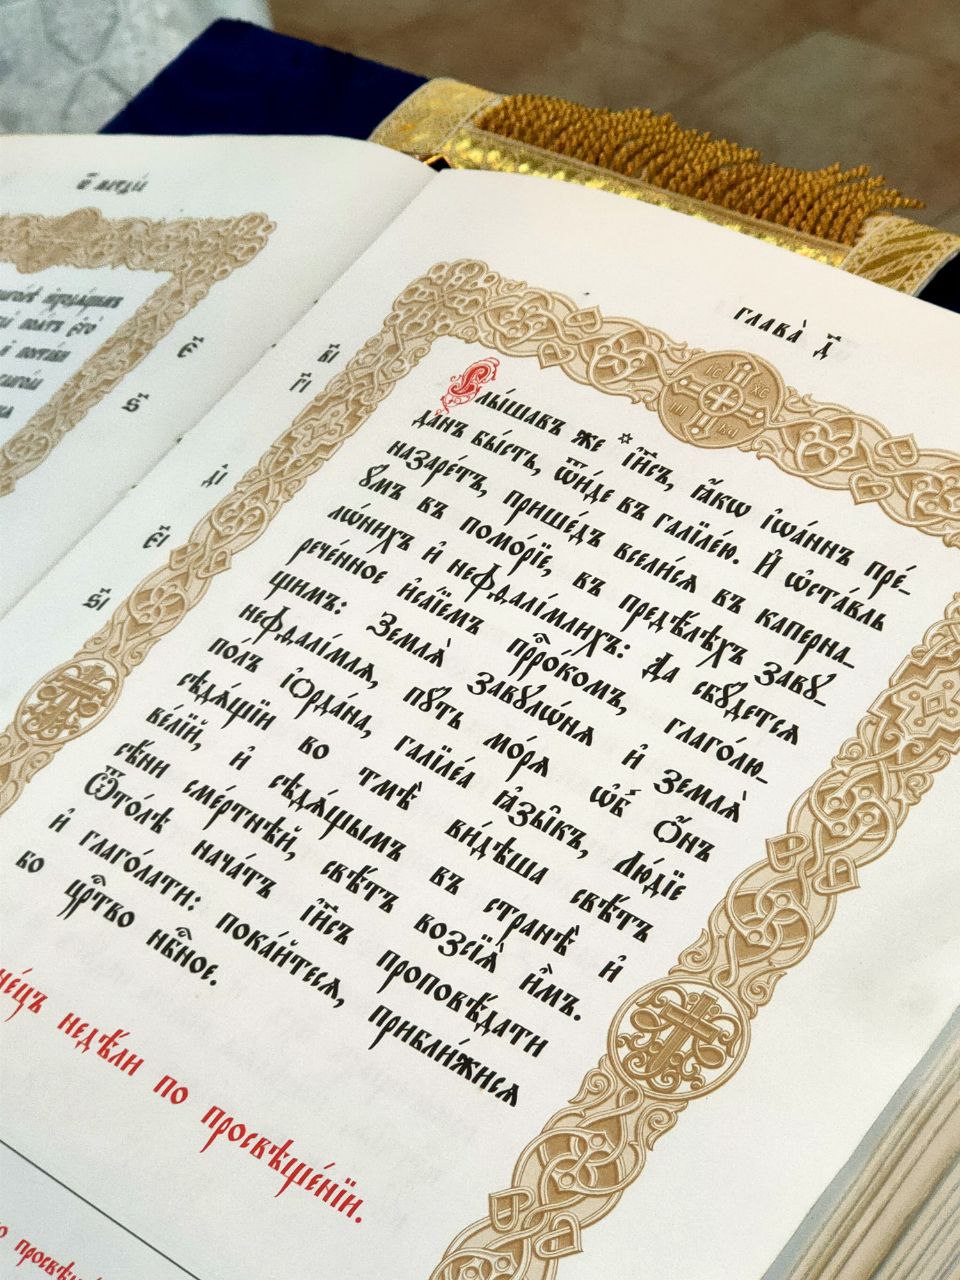 глава̀ д҃
в҃і
г҃і
д҃і
є҃і
ѕ҃і
Слы́шавъ же і҆и҃съ, ꙗ҆́кѡ і҆ѡа́ннъ пре́-
данъ бы́сть, ѿи́де въ галїле́ю. И҆ ѡ҆ста́вль
назаре́тъ, прише́дъ всели́сѧ въ каперна-
ꙋ́мъ въ помо́рїе, въ предѣ́лѣхъ завꙋ-
лѡ́нихъ и҆ неѳдалі́млихъ: Да сбꙋ́детсѧ
рече́нное и҆са́їемъ прⷪ҇ро́комъ, глаго́лю-
щимъ: Землѧ̀ завꙋлѡ́нѧ и҆ землѧ̀
неѳдалі́млѧ, пꙋ́ть мо́рѧ ѡ҆б̾ ѻ҆́нъ
по́лъ і҆ѻрда́на, галїле́а ꙗ҆зы̑къ, Лю́дїе
сѣдѧ́щїи во тмѣ̀ ви́дѣша свѣ́тъ
ве́лїй, и҆ сѣдѧ́щымъ въ странѣ̀ и҆
сѣ́ни сме́ртнѣй, свѣ́тъ возсїѧ̀ и҆̀мъ.
Ѿто́лѣ нача́тъ і҆и҃съ проповѣ́дати
и҆ глаго́лати: пока́йтесѧ, прибли́жисѧ
во црⷭ҇тво нбⷭ҇ное.
недѣ́ли по просвѣще́нїи.